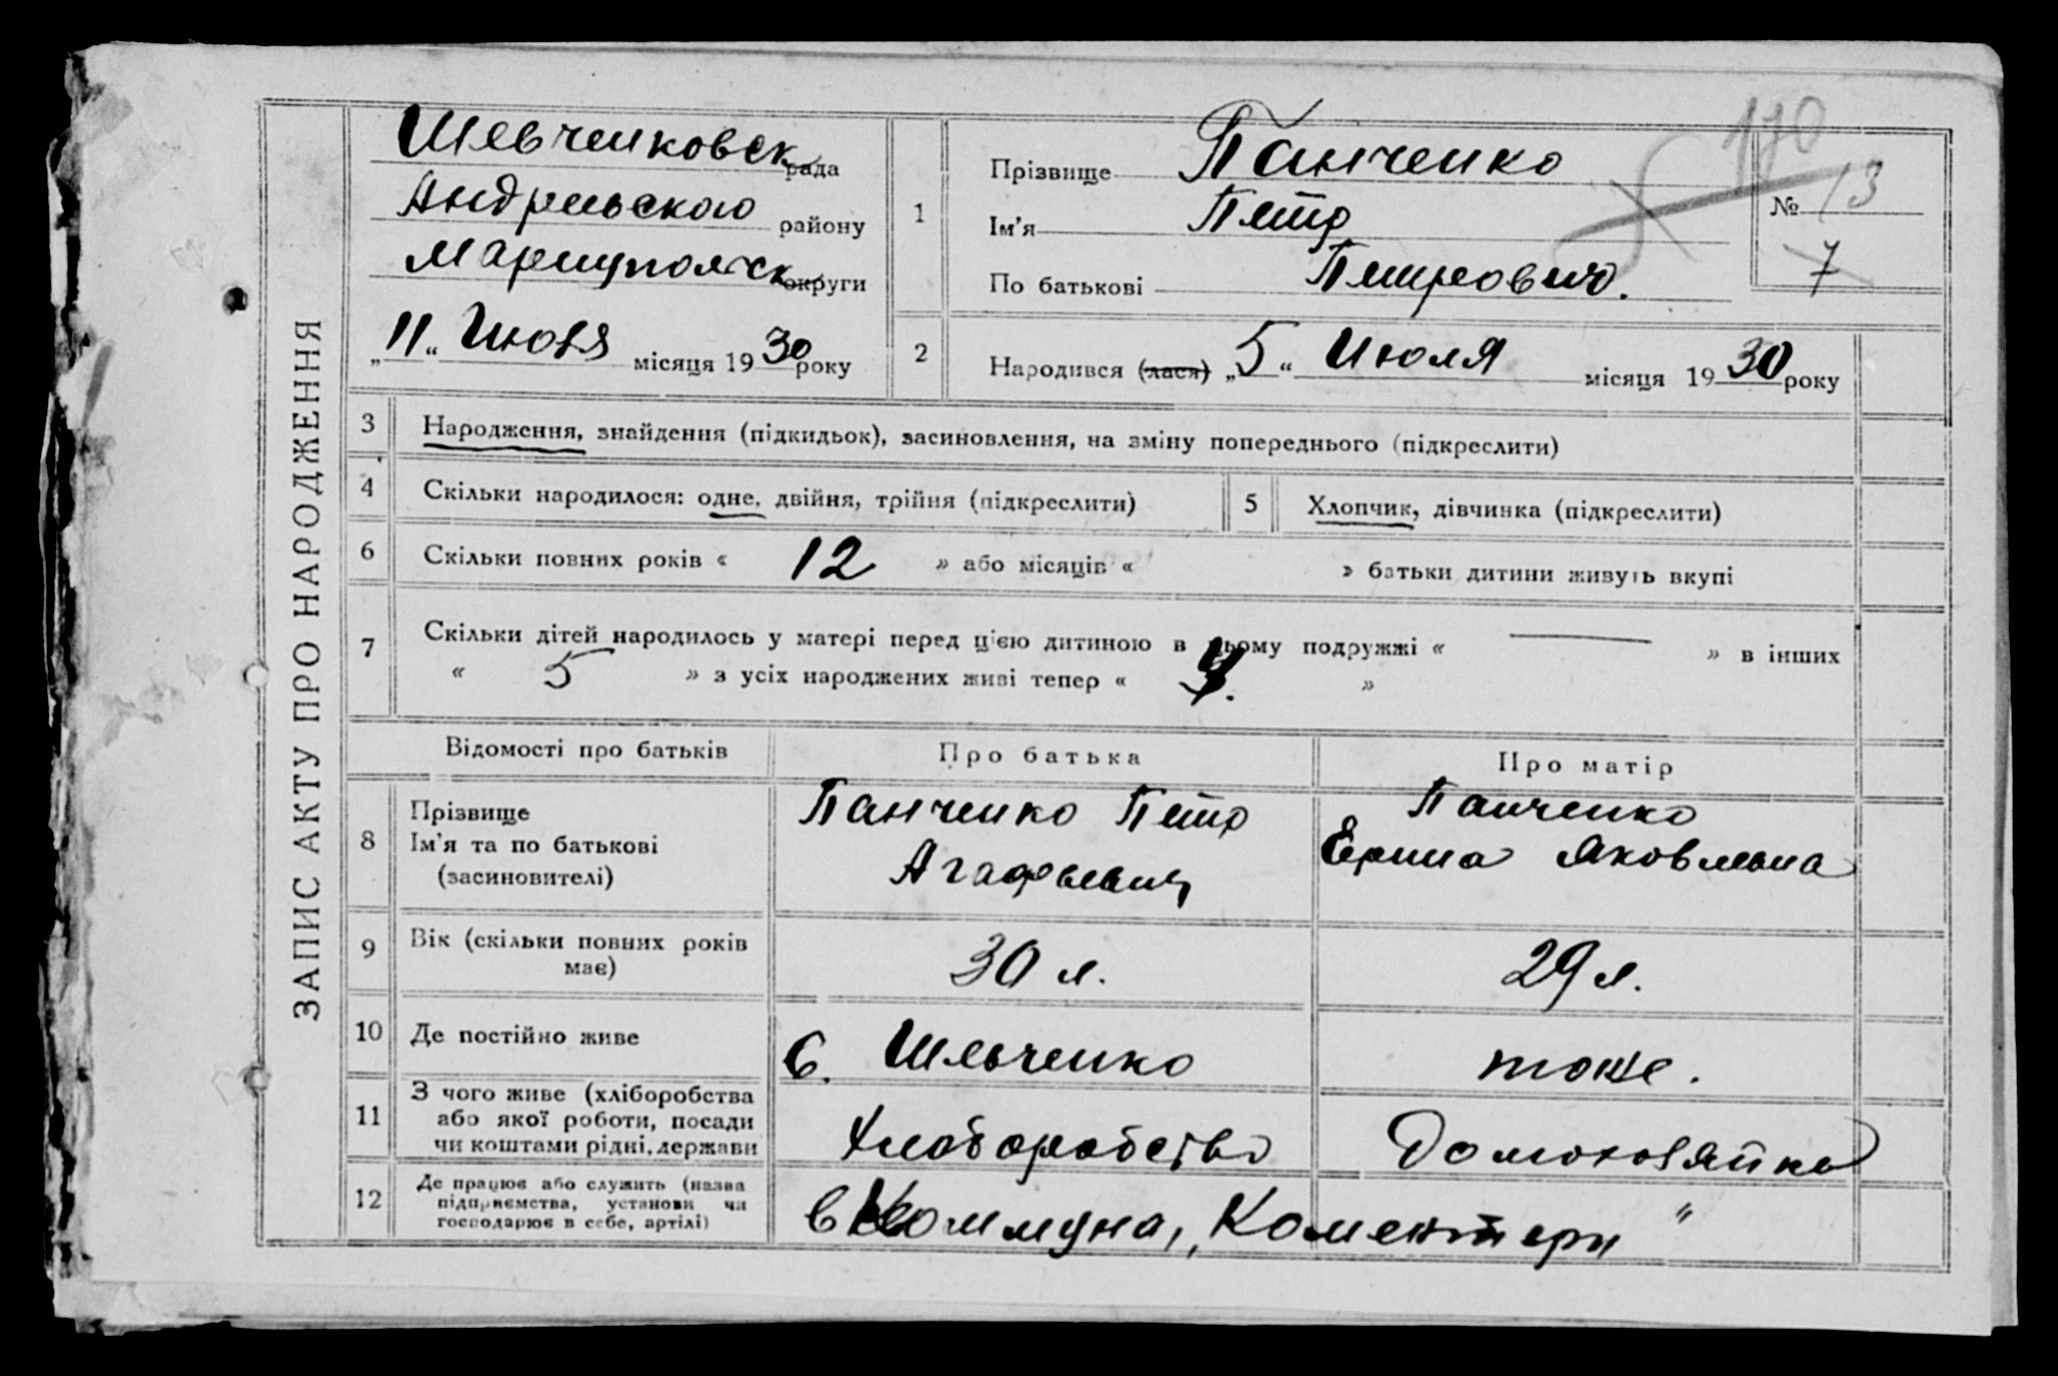 ЗАПИС АКТУ ПРО НАРОДЖЕННЯ
Шевченковск рада
Андреевского району
Мариупольск округи
„11“ Июля місяця 1930 року
1
Прізвище Панченко
Ім'я Петр
По батькові Петрович.
110
№ 13
7
2
Народився (лася) „5“ Июля місяця 1930 року
3 Народження, знайдення (підкидьок), засиновлення, на зміну попереднього (підкреслити)
4 Скільки народилося: одне, двійня, трійня (підкреслити)
5 Хлопчик, дівчинка (підкреслити)
6 Скільки повних років « 12 » або місяців « » батьки дитини живуть вкупі
7 Скільки дітей народилось у матері перед цією дитиною в цьому подружжі « — » в інших
« 5 » з усіх народжених живі тепер « 4. »
Відомості про батьків Про батька Про матір
8
Прізвище
Ім'я та по батькові
(засиновителі)
Панченко Петр
Панченко
Яковлевна
9
Вік (скільки повних років
має)
30 л. 29 л.
10 Де постійно живе с. Шевченко тоже.
11
З чого живе (хліборобства
або якої роботи, посади
чи коштами рідні, держави
Хлеборобство Домохозяйка
12
Де працює або служить (назва
підприємства, установи чи
господарює в себе, артілі)
в Коммуна „Коминтерн"